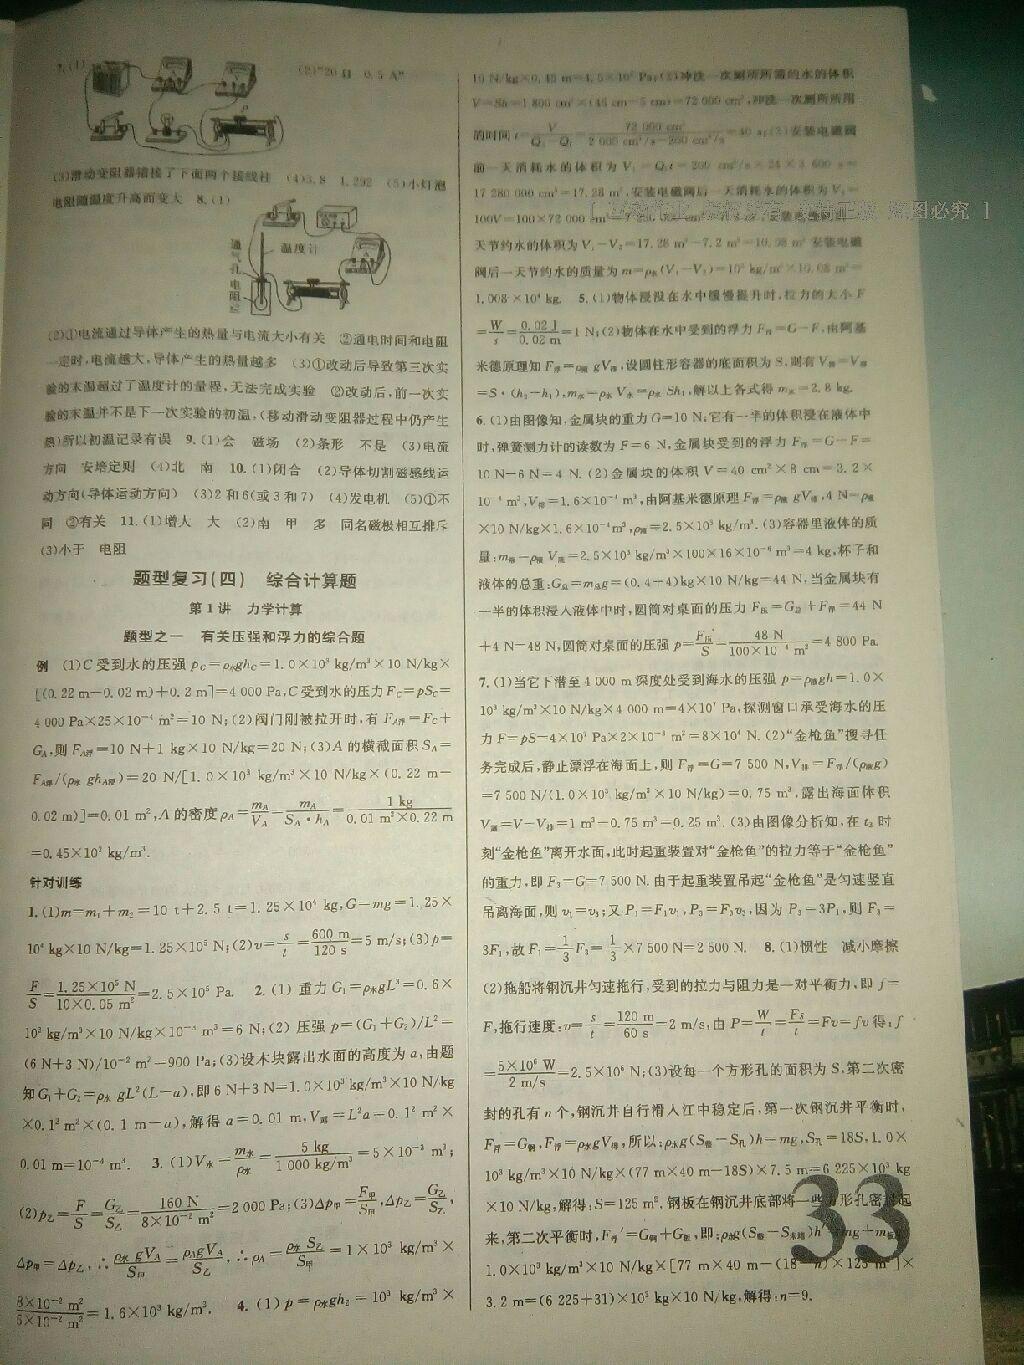 7.(1)
(2)"20 Ω 0.5 A"
(3)滑动变阻器错接了下面两个接线柱 (4)3.8 1.292 (5)小灯泡
电阻随温度升高而变大 8.(1)
通气孔
温度计
电阻丝
(2)①电流通过导体产生的热量与电流大小有关 ②通电时间和电阻
一定时,电流越大,导体产生的热量越多 (3)①改动后导致第三次实
验的末温超过了温度计的量程,无法完成实验 ②改动后,前一次实
验的末温并不是下一次实验的初温,(移动滑动变阻器过程中仍产生
热)所以初温记录有误 9.(1)会 磁场 (2)条形 不是 (3)电流
方向 安培定则 (4)北 南 10.(1)闭合 (2)导体切割磁感线运
动方向(导体运动方向) (3)2和6(或3和7) (4)发电机 (5)①不
同 ②有关 11.(1)增大 大 (2)南 甲 多 同名磁极相互排斥
(3)小于 电阻
题型复习(四) 综合计算题
第1讲 力学计算
题型之一 有关压强和浮力的综合题
例 (1)C受到水的压强 p_C=ρ水gh_C=1.0×10³ kg/m³×10 N/kg×
[(0.22 m-0.02 m)+0.2 m]=4 000 Pa,C受到水的压力F_C=pS_C=
4 000 Pa×25×10⁻⁴ m²=10 N;(2)阀门刚被拉开时,有F_A浮=F_C+
G_A,则F_A浮=10 N+1 kg×10 N/kg=20 N;(3)A的横截面积S_A=
F_A浮/(ρ水gh_A浸)=20 N/[1.0×10³ kg/m³×10 N/kg×(0.22 m-
0.02 m)]=0.01 m²,A的密度ρ_A=m_A/V_A=m_A/(S_A·h_A)=1 kg/(0.01 m²×0.22 m)
=0.45×10³ kg/m³.
针对训练
1.(1)m=m₁+m₂=10 t+2.5 t=1.25×10⁴ kg,G=mg=1.25×
10⁴ kg×10 N/kg=1.25×10⁵ N;(2)v=s/t=600 m/120 s=5 m/s;(3)p=
F/S=1.25×10⁵ N/(10×0.05 m²)=2.5×10⁵ Pa. 2.(1)重力G₁=ρ木gL³=0.6×
10³ kg/m³×10 N/kg×10⁻³ m³=6 N;(2)压强p=(G₁+G₂)/L²=
(6 N+3 N)/10⁻² m²=900 Pa;(3)设木块露出水面的高度为a,由题
知G₁+G₂=ρ水gL²(L-a),即6 N+3 N=1.0×10³ kg/m³×10 N/kg
×0.1² m²×(0.1 m-a),解得a=0.01 m,V露=L²a=0.1² m²×
0.01 m=10⁻⁴ m³. 3.(1)V水=m水/ρ水=5 kg/1 000 kg/m³=5×10⁻³ m³;
(2)p乙=F/S=G乙/S乙=160 N/(8×10⁻² m²)=2 000 Pa;(3)Δp甲=F甲/S甲,Δp乙=G乙/S乙,
Δp甲=Δp乙,∴ρ水gV_A/S甲=ρ_AgV_A/S乙,∴ρ_A=ρ水S乙/S甲=1×10³ kg/m³×
8×10⁻² m²/5×10⁻² m²=1.6×10³ kg/m³. 4.(1)p=ρ水gh₂=10³ kg/m³×
10 N/kg×0.45 m=4.5×10³ Pa;(2)冲洗一次厕所所需的水的体积
V=Sh=1 800 cm²×(45 cm-5 cm)=72 000 cm³,冲洗一次厕所所用
的时间t=V/(Q₂-Q₁)=72 000 cm³/(2 000 cm³/s-200 cm³/s)=40 s;(3)安装电磁阀
前一天消耗水的体积为V₁=Q₁t=200 cm³/s×24×3 600 s=
17 280 000 cm³=17.28 m³,安装电磁阀后一天消耗水的体积为V₂=
100V=100×72 000 cm³=7 200 000 cm³
天节约水的体积为V₁-V₂=17.28 m³-7.2 m³=10.08 m³ 安装电磁
阀后一天节约水的质量为m=ρ水(V₁-V₂)=10³ kg/m³×10.08 m³=
1.008×10⁴ kg. 5.(1)物体浸没在水中缓慢提升时,拉力的大小F
=W/s=0.02 J/0.02 m=1 N;(2)物体在水中受到的浮力F浮=G-F,由阿基
米德原理知F浮=ρ水gV排,设圆柱形容器的底面积为S,则有V排=V物
=S·(h₂-h₁),m水=ρ水V水=ρ水Sh₁,解以上各式得m水=2.8 kg.
6.(1)由图像知,金属块的重力G=10 N;它有一半的体积浸在液体中
时,弹簧测力计的读数为F=6 N,金属块受到的浮力F浮=G-F=
10 N-6 N=4 N.(2)金属块的体积V=40 cm²×8 cm=3.2×
10⁻⁴ m³,V排=1.6×10⁻⁴ m³,由阿基米德原理F浮=ρ液gV排,4 N=ρ液
×10 N/kg×1.6×10⁻⁴m³,ρ液=2.5×10³ kg/m³.(3)容器里液体的质
量:m液=ρ液V液=2.5×10³ kg/m³×100×16×10⁻⁶ m³=4 kg,杯子和
液体的总重:G总=m总g=(0.4+4)kg×10 N/kg=44 N,当金属块有
一半的体积浸入液体中时,圆筒对桌面的压力F压=G总+F浮=44 N
+4 N=48 N,圆筒对桌面的压强p=F压/S=48 N/(100×10⁻⁴ m²)=4 800 Pa.
7.(1)当它下潜至4 000 m深度处受到海水的压强p=ρ海gh=1.0×
10³ kg/m³×10 N/kg×4 000 m=4×10⁷ Pa,探测窗口承受海水的压
力F=pS=4×10⁷ Pa×2×10⁻³ m²=8×10⁴ N.(2)“金枪鱼”搜寻任
务完成后,静止漂浮在海面上,则F浮=G=7 500 N,V排=F浮/(ρ海g)
=7 500 N/(1.0×10³ kg/m³×10 N/kg)=0.75 m³,露出海面体积
V露=V-V排=1 m³-0.75 m³=0.25 m³.(3)由图像分析知,在t₃时
刻“金枪鱼”离开水面,此时起重装置对“金枪鱼”的拉力等于“金枪鱼”
的重力,即F₃=G=7 500 N.由于起重装置吊起“金枪鱼”是匀速竖直
吊离海面,则v₁=v₃;又P₁=F₁v₁,P₃=F₃v₃,因为P₃=3P₁,则F₃=
3F₁,故F₁=1/3F₃=1/3×7 500 N=2 500 N. 8.(1)惯性 减小摩擦
(2)拖船将钢沉井匀速拖行,受到的拉力与阻力是一对平衡力,即f=
F,拖行速度:v=s/t=120 m/60 s=2 m/s,由P=W/t=Fs/t=Fv=fv得:f
=5×10⁶ W/2 m/s=2.5×10⁶ N;(3)设每一个方形孔的面积为S,第二次密
封的孔有n个,钢沉井自行滑入江中稳定后,第一次钢沉井平衡时,
F浮=G钢,F浮=ρ水gV排,所以:ρ水g(S整-S孔)h=mg,S孔=18S,1.0×
10³ kg/m³×10 N/kg×(77 m×40 m-18S)×7.5 m=6 225×10³ kg
×10 N/kg,解得:S=125 m².钢板在钢沉井底部将一些方形孔密封起
来,第二次平衡时,F浮′=G钢+G板,即:ρ水g(S整-S未堵)h′=mg+m板g,
1.0×10³ kg/m³×10 N/kg×[77 m×40 m-(18-n)×125 m²]×
3.2 m=(6 225+31)×10³ kg×10 N/kg,解得:n=9.
33